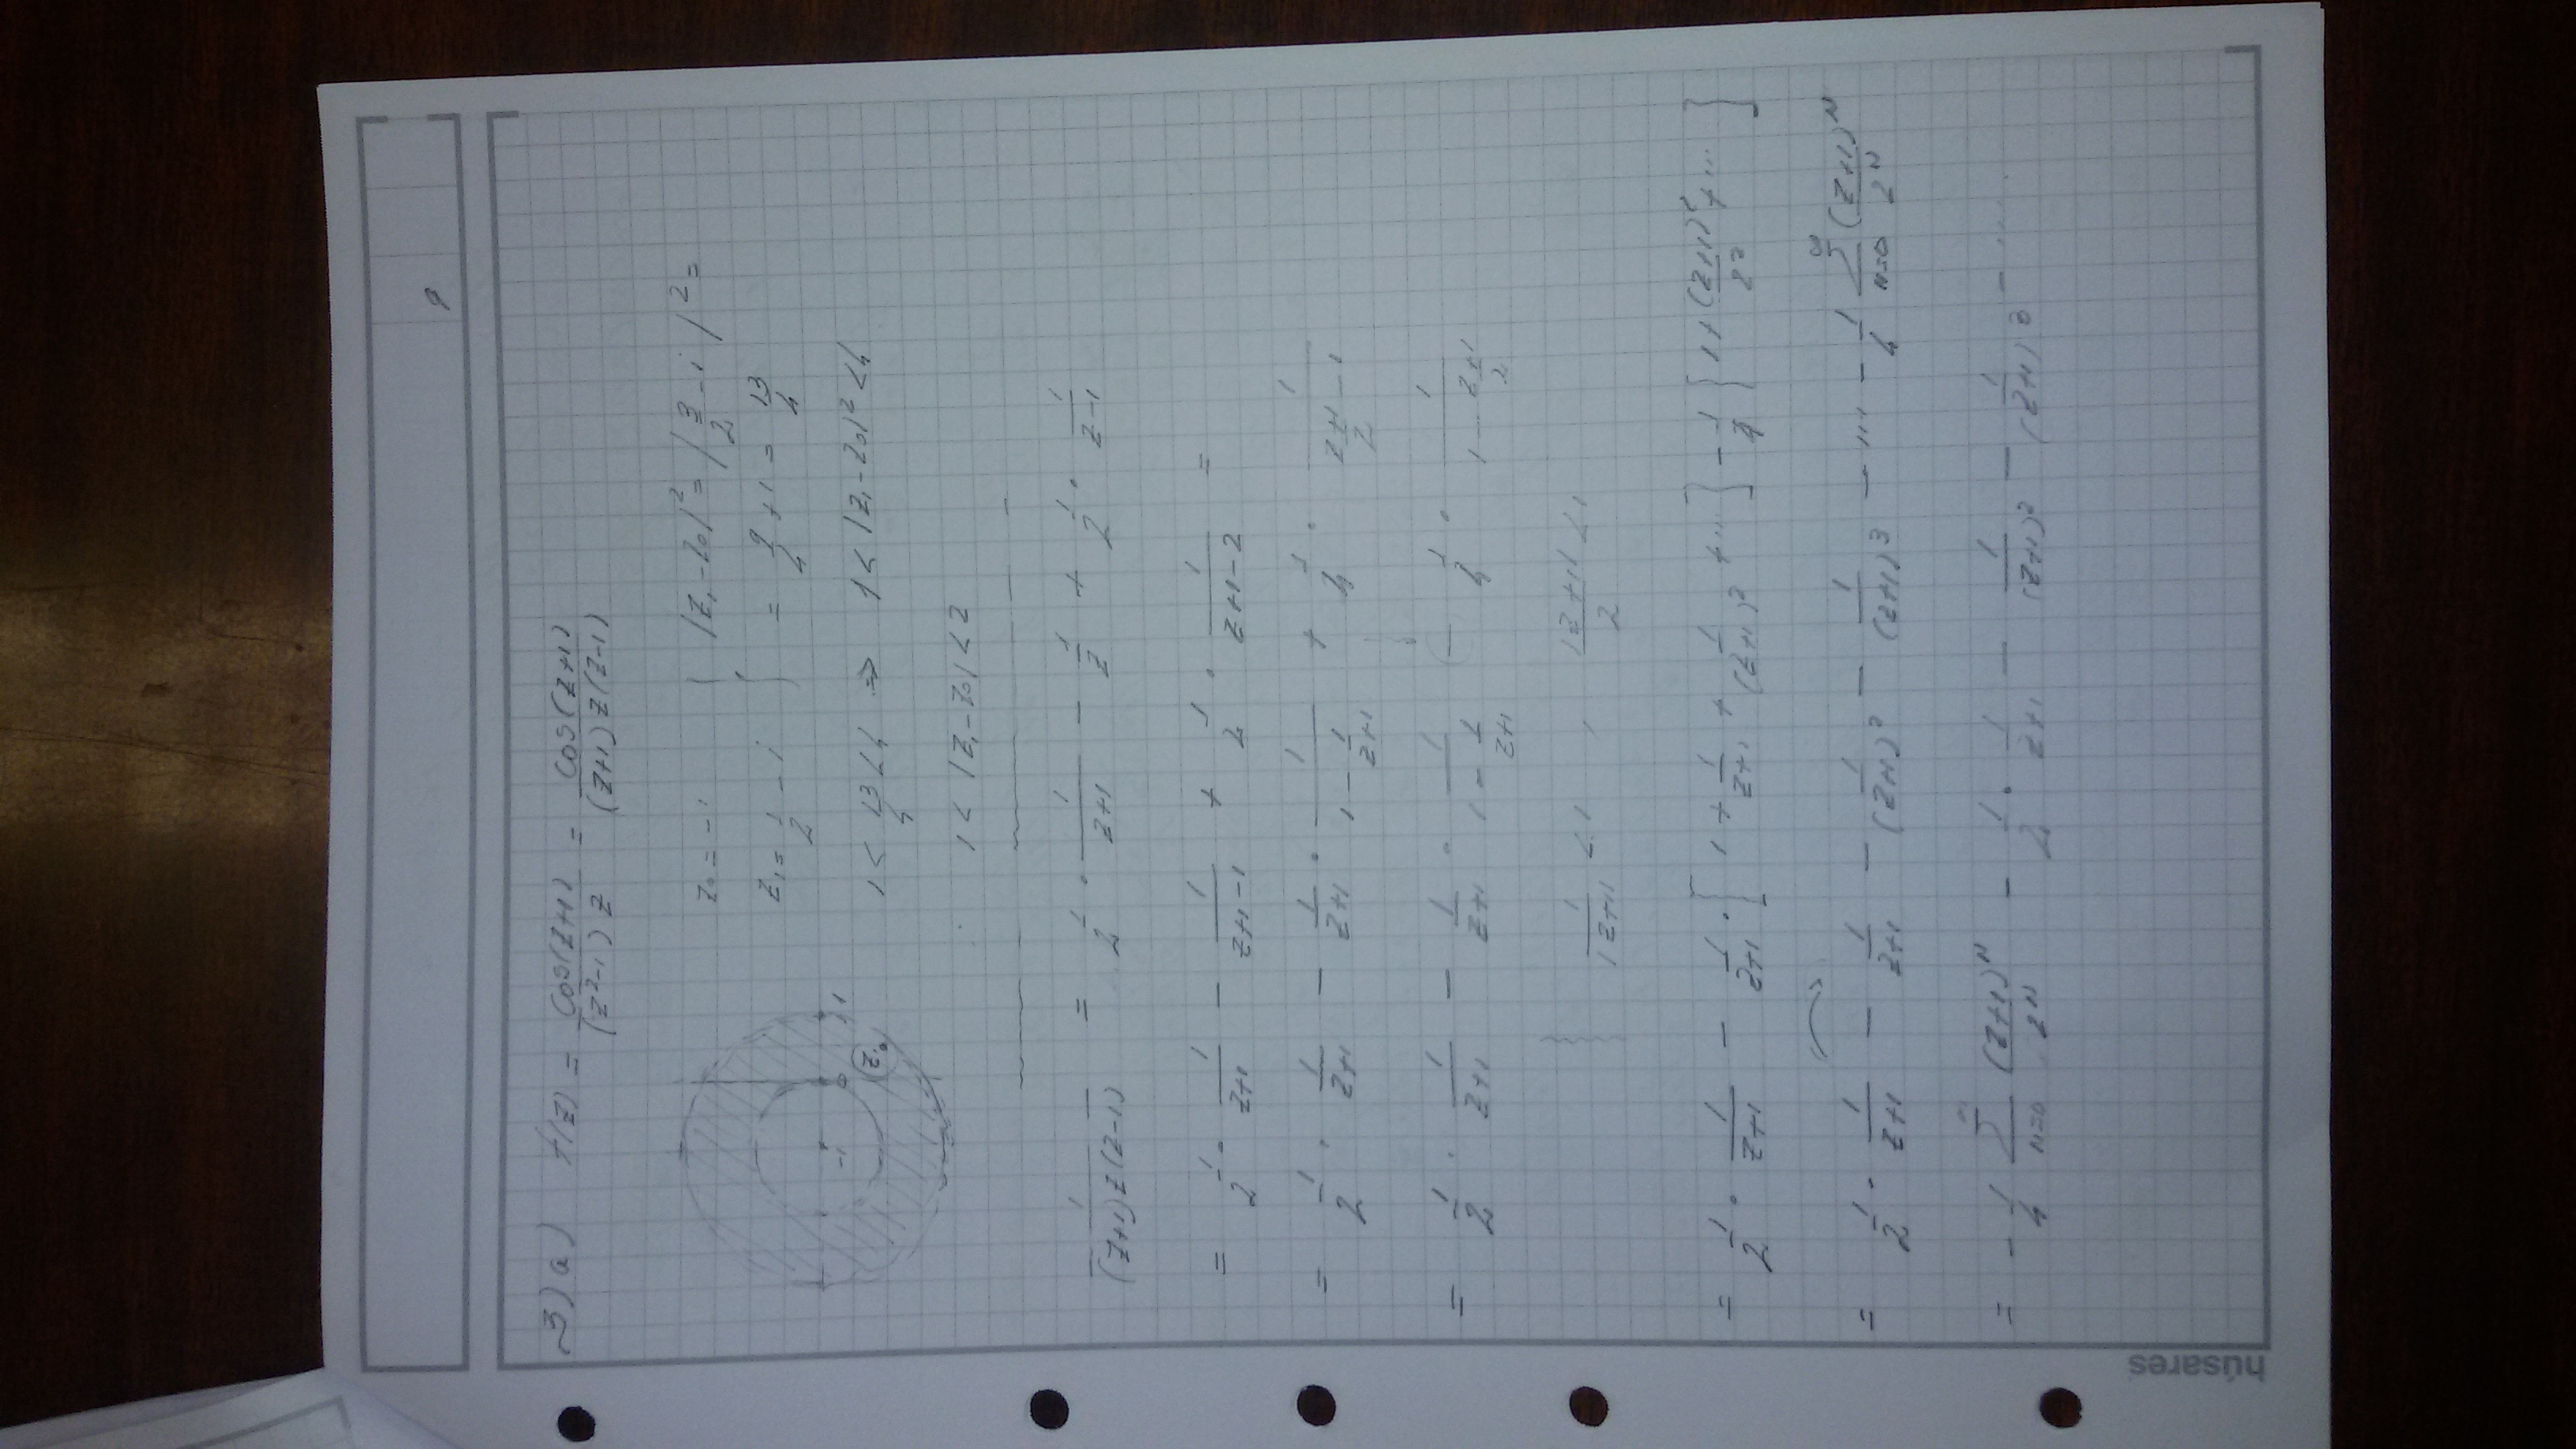 9
3) a) f(z) = cos(z+1) / (z²-1) z = cos(z+1) / (z+1) z (z-1)
z₀ = -1 } |z₁ - z₀|² = | 3/2 - i |² =
z₁ = 1/2 - i } = 9/4 + 1 = 13/4
-1 0 1 z₁
1 < 13/4 < 4 ⇒ 1 < |z₁ - z₀|² < 4
1 < |z₁ - z₀| < 2
1 / (z+1) z (z-1) = 1/2 · 1/(z+1) - 1/z + 1/2 · 1/(z-1)
= 1/2 · 1/(z+1) - 1/(z+1-1) + 1/2 · 1/(z+1-2) =
= 1/2 · 1/(z+1) - 1/(z+1) · 1/(1 - 1/(z+1)) + 1/4 · 1/((z+1)/2 - 1)
= 1/2 · 1/(z+1) - 1/(z+1) · 1/(1 - 1/(z+1)) (- 1/4 · 1/(1 - (z+1)/2)
1/|z+1| < 1 , |z+1|/2 < 1
= 1/2 · 1/(z+1) - 1/(z+1) · [ 1 + 1/(z+1) + 1/(z+1)² + ... ] - 1/4 [ 1 + (z+1)²/2² + ... ]
= 1/2 · 1/(z+1) - 1/(z+1) - 1/(z+1)² - 1/(z+1)³ - ... - 1/4 ∑ n=0 ∞ (z+1)ⁿ/2ⁿ
= - 1/4 ∑ n=0 ∞ (z+1)ⁿ/2ⁿ - 1/2 · 1/(z+1) - 1/(z+1)² - 1/(z+1)³ - ...
húsares